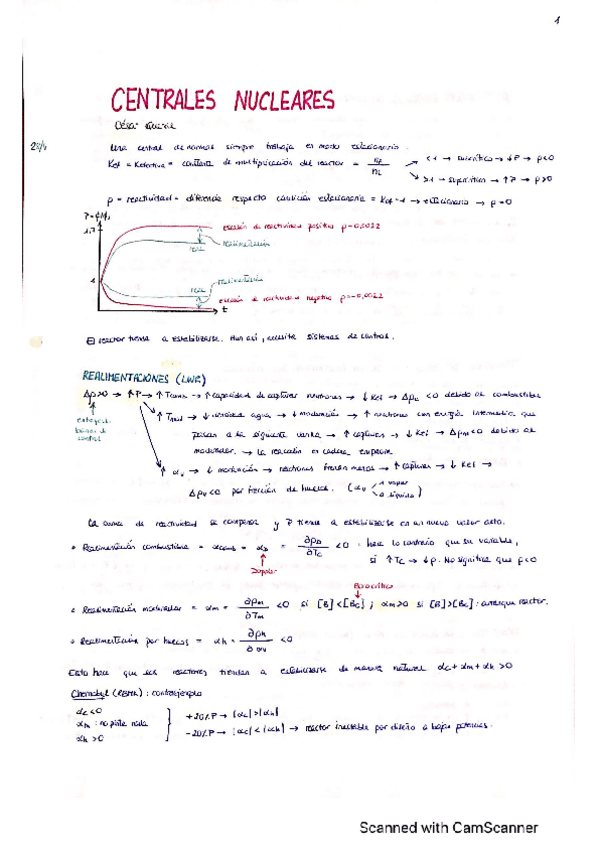 1
CENTRALES NUCLEARES
César
Una central de normal siempre trabaja en modo estacionario.
Kef = Kefectiva = constante de multiplicación del reactor = → <1 → subcrítico → ↓P → ρ<0
→ >1 → supercrítico → ↑P → ρ>0
ρ = reactividad = diferencia respecto condición estacionaria = Kef=1 → estacionario → ρ=0
1.7
inserción de reactividad positiva ρ=0,0022
realimentación
1
realimentación
inserción de reactividad negativa ρ=-0,0022
t
El reactor tiende a estabilizarse. Aun así, necesita sistemas de control.
REALIMENTACIONES (LWR)
Δρ>0 → ↑P → ↑Tcomb → ↑capacidad de capturar neutrones → ↓Kef → Δρc <0 debido al combustible
barras de control
↑Tmod → ↓ densidad agua → ↓ moderación → ↑ neutrones con energía intermedia que
pasan a la siguiente varilla → ↑ capturas → ↓ Kef → Δρm<0 debido al
moderador. → La reacción en cadena empeora
↑ αv → ↓ moderación → neutrones frenan menos → ↑ capturas → ↓ Kef →
Δρv<0 por fracción de huecos. (αv 1 vapor
0 líquido)
La suma de reactividad se compensa y P tiende a estabilizarse en un nuevo valor alto.
• Realimentación combustible = αcomb = αD = ∂ρD/∂Tc <0 : hace lo contrario que su variable,
si ↑Tc → ↓ρ. No significa que ρ<0
Doppler
Boro crítico
• Realimentación moderador = αm = ∂ρm/∂Tm <0 si [B]<[Bc] ; αm>0 si [B]>[Bc] : arranque reactor.
• Realimentación por huecos = αh = ∂ρh/∂αv <0
Esto hace que los reactores tiendan a estabilizarse de manera natural αc+αm+αh >0
Chernobyl (RBMK) : contraejemplo
αc<0
αm : no pinta nada
αh >0
+20%P → |αc|>|αh|
-20%P → |αc|<|αh| → reactor inestable por diseño a bajas potencias.
Scanned with CamScanner